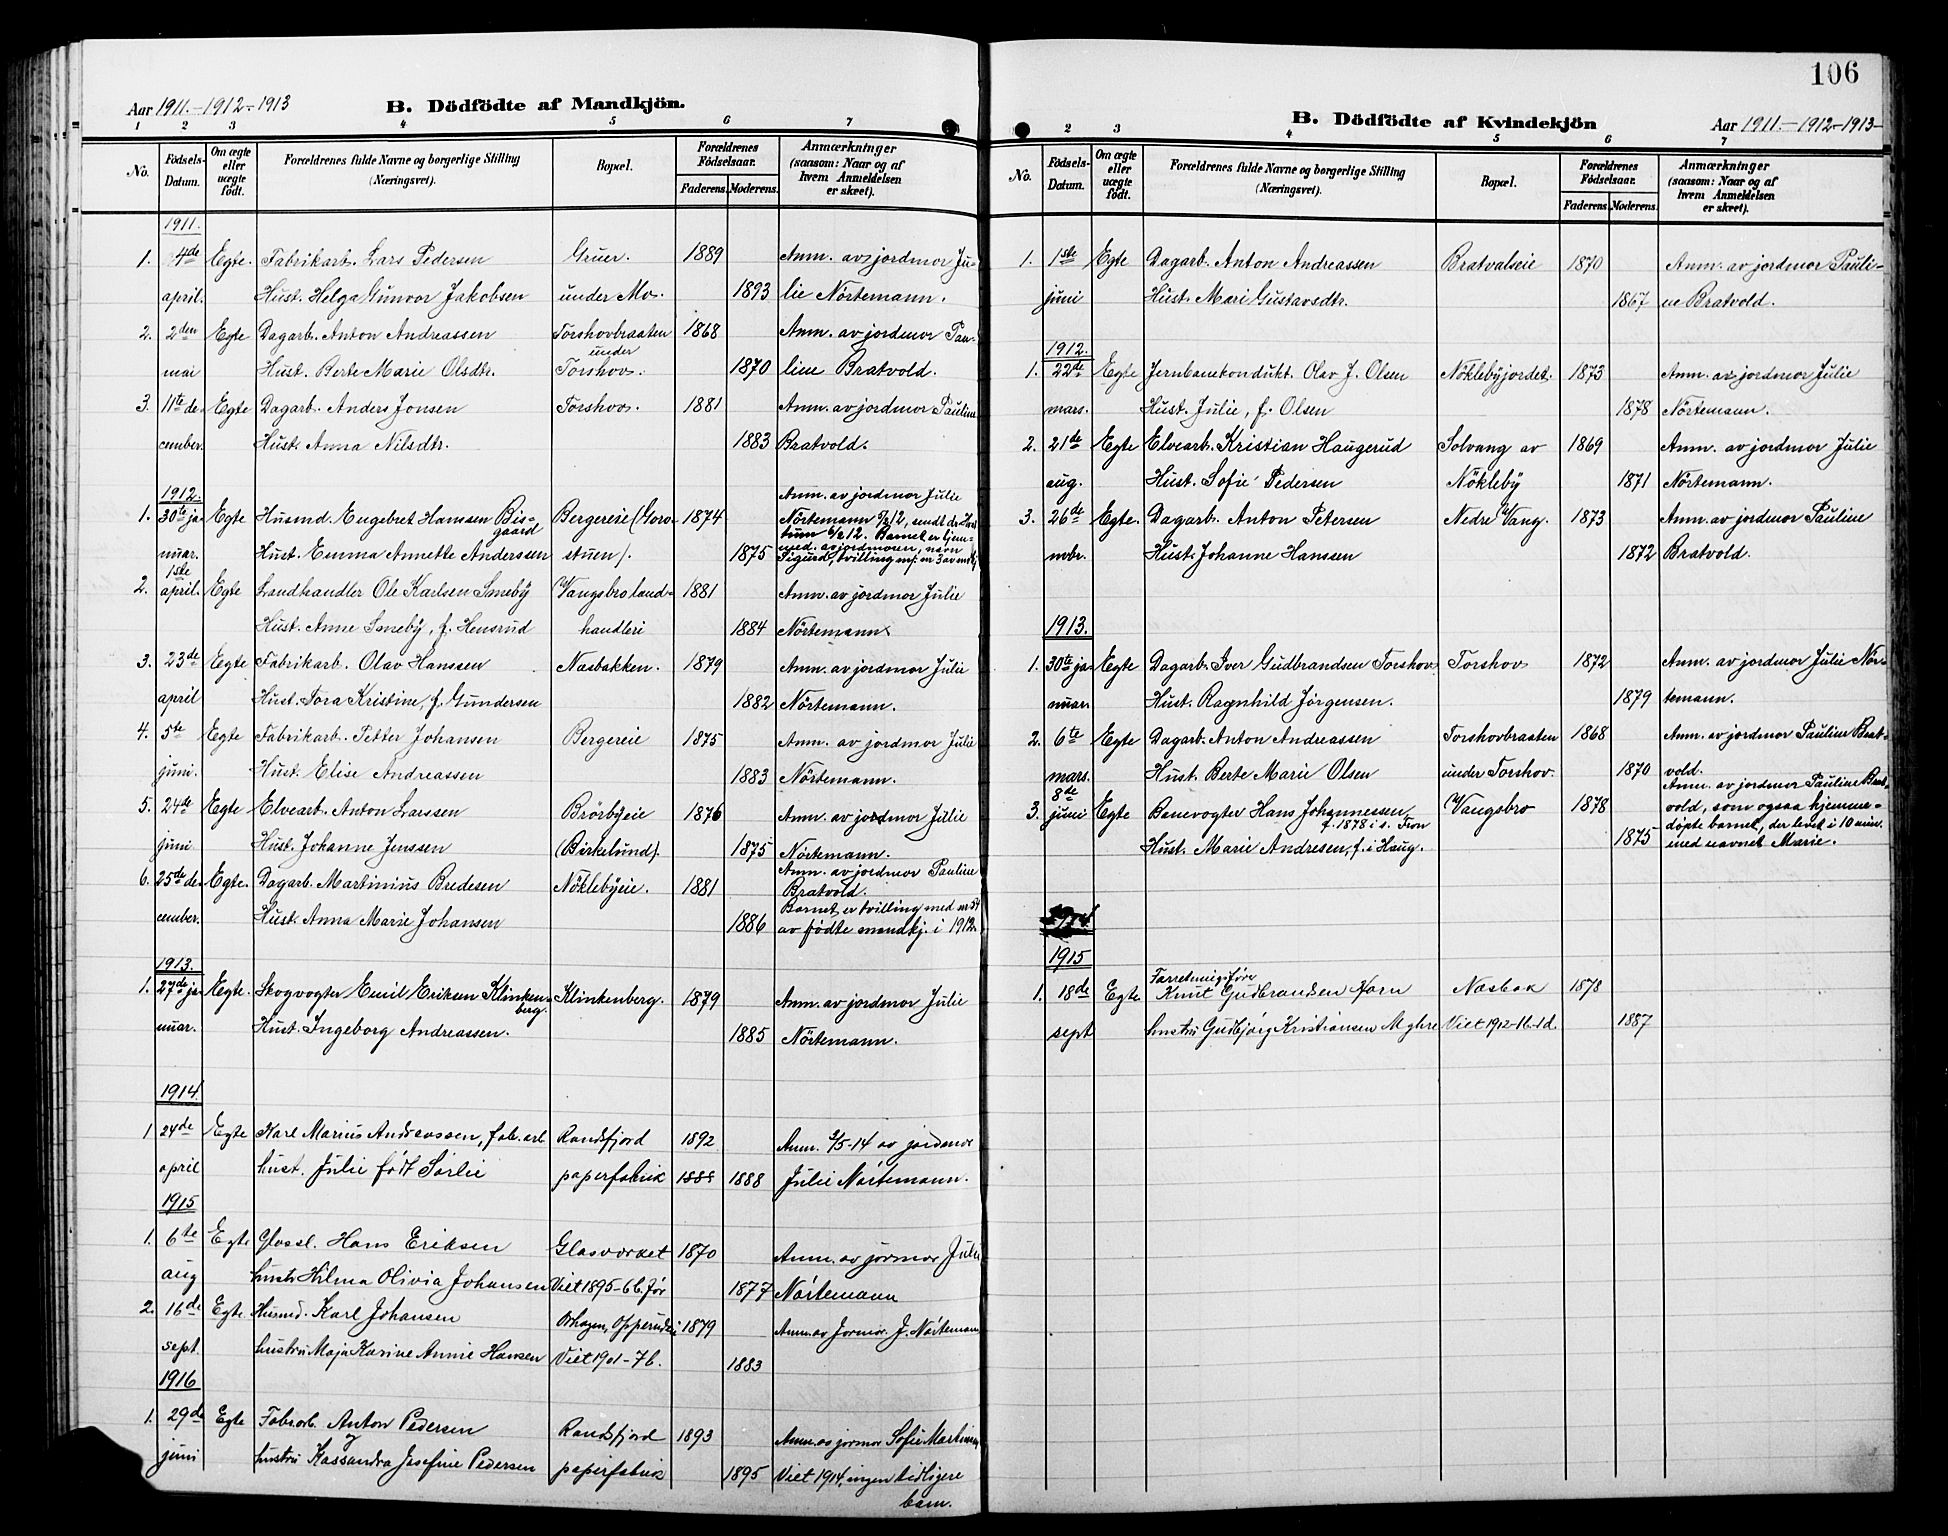 Aar 1911.-1912-1913
B. Dödfödte af Mandkjön.
1 2 3 4 5 6 7
No.
Födsels-Datum.
Om ægte eller uægte födt.
Forældrenes fulde Navne og borgerlige Stilling (Næringsvei).
Bopæl.
Forældrenes Födselsaar.
Faderens.
Moderens.
Anmærkninger (saasom: Naar og af hvem Anmeldelsen er skeet).
1911.
1. 4de Egte. Fabrikarb. Lars Pedersen Gruer. 1889 Anm. av jordmor Ju-
april. Hust. Helga Gunvor Jakobsen under Mo. 1893 lie Nörtemann.
2. 2den Egte Dagarb. Anton Andreassen Torshovbraaten 1868 Anm. av jordmor Pau-
under
mai Hust. Berte Marie Olsdtr. Torshov. 1870 line Bratvold.
3. 11te de- Egte Dagarb. Anders Jonsen Torshov. 1881 Anm. av jordmor Pauline
cember. Hust. Anna Nilsdtr. 1883 Bratvold.
1912. Anm. av jordmor Julie
1. 30te ja- Egte Husmd. Engebret Hansen Bis- Bergereie (Goro- 1874 Nörtemann
gaard
nuar. Hust. Emma Annette Anderssen stuen). 1875 Sigurd, tvilling
1ste
2. april. Egte Landhandler Ole Karlsen Smeby Vangsbro land- 1881 Anm. av jordmor Julie
Hust. Anne Smeby, f. Hensrud handleri 1884 Nörtemann
3. 23de Egte Fabrikarb. Olav Hanssen Nasbakken. 1879 Anm. av jordmor Julie
april Hust. Tora Kristine, f. Gundersen 1882 Nörtemann.
4. 5te Egte Fabrikarb. Petter Johansen Bergereie 1875 Anm. av jordmor Julie
juni. Hust. Elise Andreassen 1883 Nörtemann.
5. 24de Egte Elvearb. Anton Larssen Brörbyeie 1876 Anm. av jordmor Julie
juni Hust. Johanne Jenssen (Birkelund). 1875 Nörtemann.
6. 25de de- Egte. Dagarb. Martinius Bredesen Nöklebyeie. 1881 Anm. av jordmor Pauline
Bratvold.
cember. Hust. Anna Marie Johansen 1886 Barnet er tvilling med nr 54
av fødte mandkj. i 1912.
1913.
1. 27de ja- Egte. Skogvogter Emil Eriksen Klinken- Klinkenberg. 1879 Anm. av jordmor Julie
berg.
nuar. Hust. Ingeborg Andreassen. 1885 Nörtemann.
1914
1 24de Egte Karl Marius Andreassen, fab.arb Randsfjord 1892 Anm. 9/5-14 av jordmor
april hust. Julie født Sørlie papirfabrik 1888 1888 Julie Nørtemann.
1915
1. 6te Egte Glassl. Hans Eriksen Glasverket 1870 Anm. av jormor Julie
aug hustr Hilma Olivia Johansen Viet 1895-6b. før 1877 Nørtemann
2. 16de Egte Husmd. Karl Johansen 1879 Anm. av Jormor J. Nørtemann
sept. hustru Maja Karine Annie Hansen Viet 1901-7b. 1883
1916
1. 29de Egte Fabrarb. Anton Pedersen Randsfjord 1893 Anm. av jormor Sofie Martinsen
juni hustru Kassandra Josefine Pedersen papirfabrik 1895 Viet 1914, ingen tidligere
barn.
106
B. Dödfödte af Kvindekjön
Aar 1911.-1912-1913-
2 3 4 5 6 7
No.
Födsels-Datum.
Om ægte eller uægte födt.
Forældrenes fulde Navne og borgerlige Stilling (Næringsvei).
Bopæl.
Forældrenes Födselsaar.
Faderens.
Moderens.
Anmærkninger (saasom: Naar og af hvem Anmeldelsen er skeet).
1. 1ste Egte Dagarb. Anton Andreassen Bratvalseie 1870 Anm. av jordmor Pauli-
juni Hust. Mari Gustavsdtr. 1867 ne Bratvold.
1912.
1. 22de Egte Jernbanekondukt. Olav J. Olsen Nöklebyjordet 1873 Anm. av jordmor Julie
mars. Hust. Julie, f. Olsen 1878 Nörtemann.
2. 21de Egte Elvearb. Kristian Haugerud Solvang av 1869 Anm. av jordmor Julie
aug. Hust. Sofie Pedersen Nökleby 1871 Nörtemann.
3. 26de Egte. Dagarb. Anton Petersen Nedre Vang. 1873 Anm. av jordmor Pauline
nvbr. Hust. Johanne Hanssen 1872 Bratvold.
1913.
1. 30te ja- Egte Dagarb. Iver Gudbrandsen Torshov Torshov 1872 Anm. av jordmor Julie Nör-
nuar. Hust. Ragnhild Jörgensen. 1879 temann.
2. 6te Egte Dagarb. Anton Andreassen Torshovbraaten 1868 Anm. av jordmor Pauline Brat-
mars. Hust. Berte Marie Olsen under Torshov. 1870 vold.
8de Anm. av jordmor Pauline Brat-
3. juni Egte Banevogter Hans Johannessen Vangsbro 1878 vold, som ogsaa hjemme-
f. 1878 i s. Fron døpte barnet, der levet i 10 min.
Hust. Marie Andresen, f. i Haug. 1875 med navnet Marie.
1915
Forretningsfører
1. 18de Egte Knut Gudbrandsen Korn Næsbak 1878
sept hustru Gudbjørg Kristiansen Myhre Viet 1912-1b.-1d. 1887